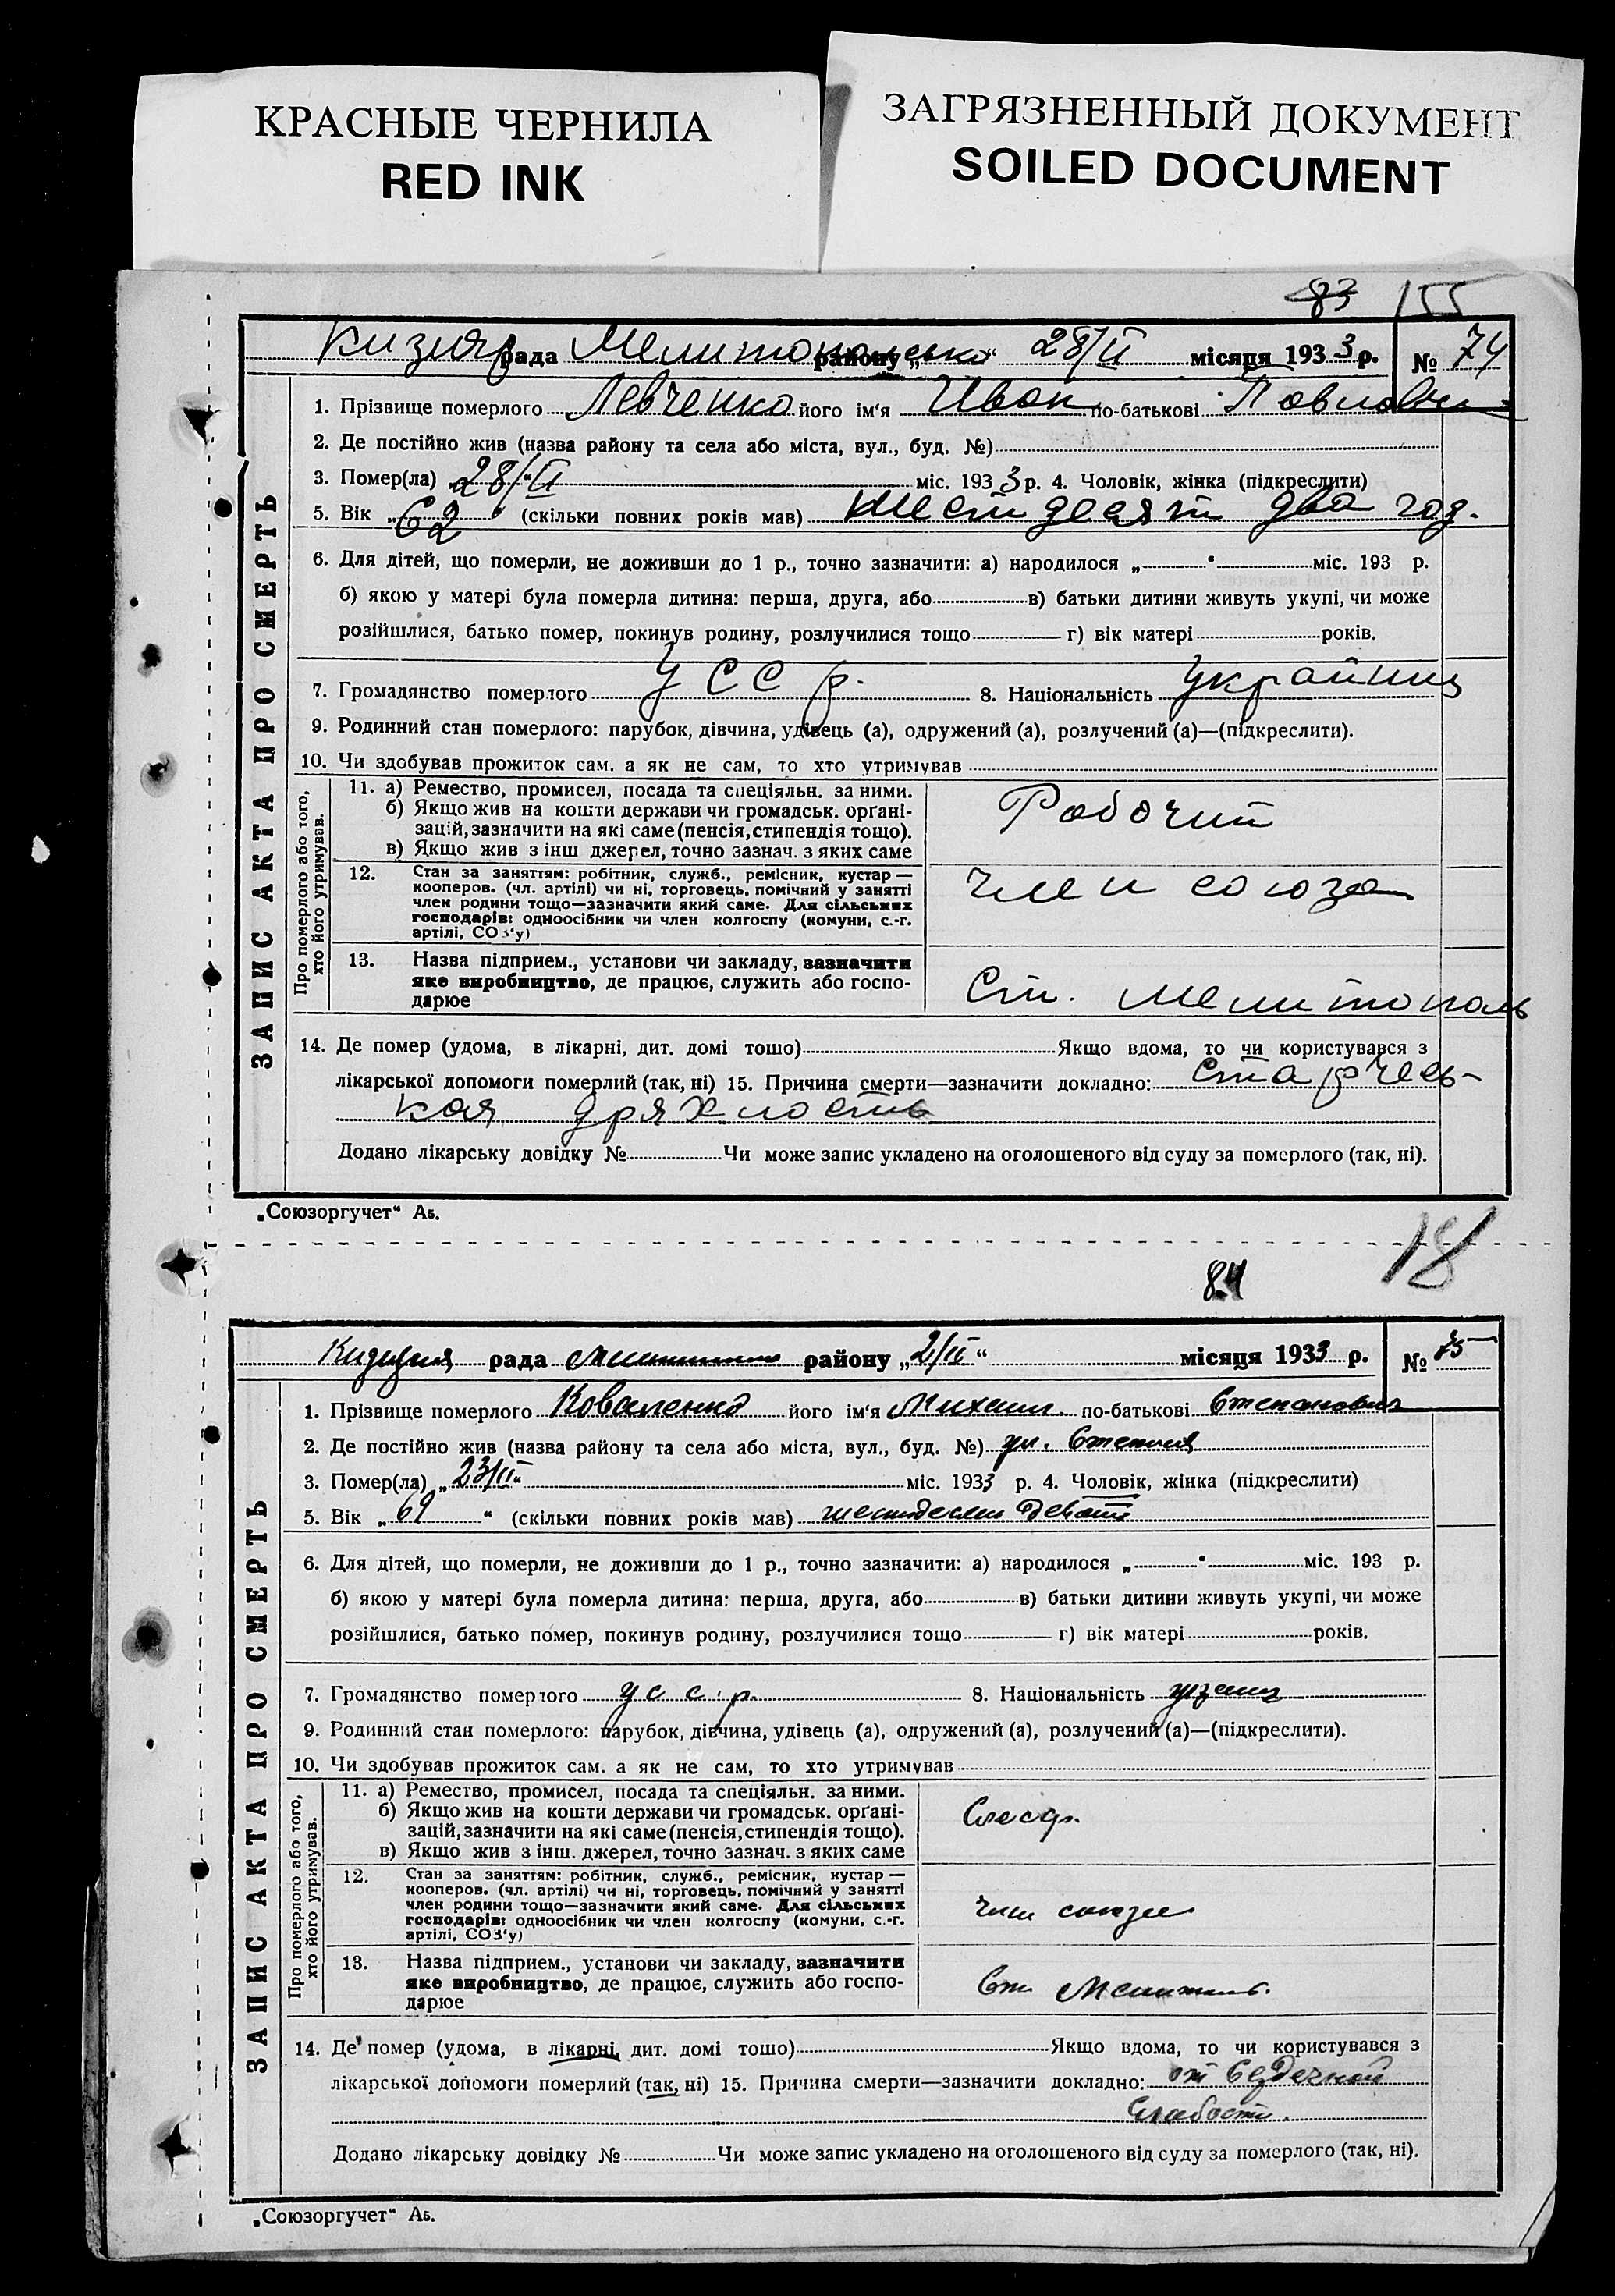 КРАСНЫЕ ЧЕРНИЛА
RED INK
ЗАГРЯЗНЕННЫЙ ДОКУМЕНТ
SOILED DOCUMENT
83 155
Кизияр рада Мелитопольсько району „ “ 28/II місяця 1933 р. № 74
ЗАПИС АКТА ПРО СМЕРТЬ
1. Прізвище померлого Левченко його ім‘я Иван по-батькові Павлович
2. Де постійно жив (назва району та села або міста, вул., буд. №)
3. Помер(ла) „28/II“ міс. 1933 р. 4. Чоловік, жінка (підкреслити)
5. Вік „62“ (скільки повних років мав) шестдесят два год.
6. Для дітей, що померли, не доживши до 1 р., точно зазначити: а) народилося „ “ міс. 193 р.
б) якою у матері була померла дитина: перша, друга, або в) батьки дитини живуть укупі, чи може
розійшлися, батько помер, покинув родину, розлучилися тощо г) вік матері років.
7. Громадянство померлого УССР. 8. Національність украйниц
9. Родинний стан померлого: парубок, дівчина, удівець (а), одружений (а), розлучений (а)—(підкреслити).
10. Чи здобував прожиток сам. а як не сам, то хто утримував
Про померлого або того, хто його утримував.
11. а) Ремество, промисел, посада та спеціяльн. за ними.
б) Якщо жив на кошти держави чи громадськ. орґані-
зацій, зазначити на які саме (пенсія, стипендія тощо).
в) Якщо жив з інш джерел, точно зазнач. з яких саме
Робочий
12. Стан за заняттям: робітник, служб., ремісник, кустар—
кооперов. (чл. артілі) чи ні, торговець, помічний у занятті
член родини тощо—зазначити який саме. Для сільських
господарів: одноосібник чи член колгоспу (комуни, с.-г.
артілі, СОЗ‘у)
член союза
13. Назва підприєм., установи чи закладу, зазначити
яке виробництво, де працює, служить або госпо-
дарює
Ст. Мелитополь
14. Де помер (удома, в лікарні, дит. домі тошо) Якщо вдома, то чи користувався з
лікарської допомоги померлий (так, ні) 15. Причина смерти—зазначити докладно: Старчесь-
кая дряхлость
Додано лікарську довідку № Чи може запис укладено на оголошеного від суду за померлого (так, ні).
„Союзоргучет“ Аб.
18
84
рада району „2/II“ місяця 1933 р. № 75
ЗАПИС АКТА ПРО СМЕРТЬ
1. Прізвище померлого Коваленко його ім‘я Михаил по-батькові Степанович
2. Де постійно жив (назва району та села або міста, вул., буд. №) ул. Степная
3. Помер(ла) „23/II“ міс. 1933 р. 4. Чоловік, жінка (підкреслити)
5. Вік „69“ (скільки повних років мав) шестдесят девать
6. Для дітей, що померли, не доживши до 1 р., точно зазначити: а) народилося „ “ міс. 193 р.
б) якою у матері була померла дитина: перша, друга, або в) батьки дитини живуть укупі, чи може
розійшлися, батько помер, покинув родину, розлучилися тощо г) вік матері років.
7. Громадянство померлого УССР. 8. Національність
9. Родинний стан померлого: парубок, дівчина, удівець (а), одружений (а), розлучений (а)—(підкреслити).
10. Чи здобував прожиток сам. а як не сам, то хто утримував
Про померлого або того, хто його утримував.
11. а) Ремество, промисел, посада та спеціяльн. за ними.
б) Якщо жив на кошти держави чи громадськ. орґані-
зацій, зазначити на які саме (пенсія, стипендія тощо).
в) Якщо жив з інш. джерел, точно зазнач. з яких саме
Слесар.
12. Стан за заняттям: робітник, служб., ремісник, кустар—
кооперов. (чл. артілі) чи ні, торговець, помічний у занятті
член родини тощо—зазначити який саме. Для сільських
господарів: одноосібник чи член колгоспу (комуни, с.-г.
артілі, СОЗ‘у)
член союза
13. Назва підприєм., установи чи закладу, зазначити
яке виробництво, де працює, служить або госпо-
дарює
Ст. Мелитополь.
14. Де помер (удома, в лікарні, дит. домі тошо) Якщо вдома, то чи користувався з
лікарської допомоги померлий (так, ні) 15. Причина смерти—зазначити докладно: от Сердечной
Слабости.
Додано лікарську довідку № Чи може запис укладено на оголошеного від суду за померлого (так, ні).
„Союзоргучет“ Аб.